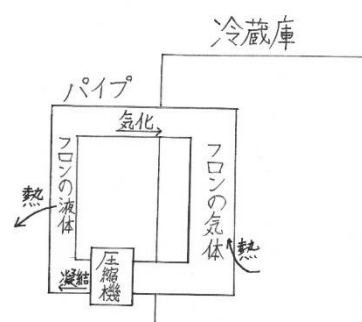 冷蔵庫
パイプ
気化
フロンの液体
フロンの気体
熱
熱
圧縮機
凝結